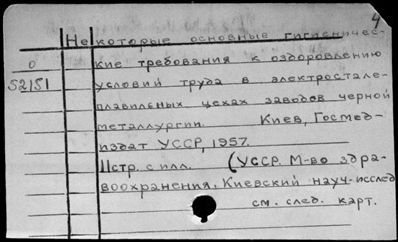 4
Некоторые основные гигиеничес-
о кие требования к оздоровлению
52151 условий труда в электростале-
плавильных цехах заводов черной
металлургии. Киев, Госмед-
издат УССР, 1957.
11стр. с илл. (УССР. М-во здра-
воохранения. Киевский науч-исслед
см. след. карт.